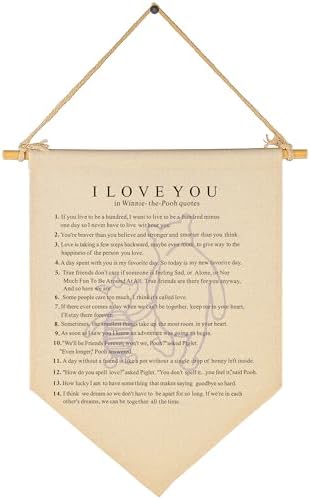 I LOVE YOU
in Winnie-the-Pooh quotes
1. If you live to be a hundred, I want to live to be a hundred minus
one day so I never have to live without you.
2. You're braver than you believe and stronger and smarter than you think.
3. Love is taking a few steps backward, maybe even more, to give way to the
happiness of the person you love.
4. A day spent with you is my favorite day. So today is my new favorite day.
5. True friends don't care if someone is feeling Sad, or Alone, or Not
Much Fun To Be Around At All. True friends are there for you anyway,
And are here for you always.
6. Some people care too much, I think it's called love.
7. If there ever comes a day when we can't be together, keep me in your heart,
I'll stay there forever.
8. Sometimes, the smallest things take up the most room in your heart.
9. As soon as I saw you I knew an adventure was going to begin.
10. "We'll be Friends Forever, won't we, Pooh?" asked Piglet.
"Even longer," Pooh answered.
11. A day without a friend is like a pot without a single drop of honey left inside.
12. "How do you spell love?" asked Piglet. "You don't spell it...you feel it", said Pooh.
13. How lucky I am to have something that makes saying goodbye so hard.
14. I think we dream so we don't have to be apart for so long. If we're in each
other's dreams, we can be together all the time.